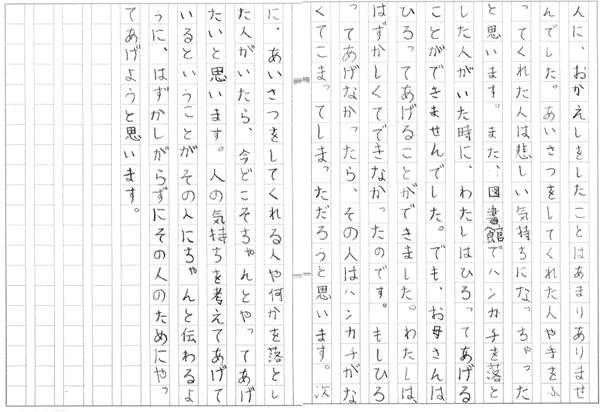 人に、おかえしをしたことはあまりありませ
んでした。あいさつをしてくれた人や手をふ
ってくれた人は悲しい気持ちになっちゃった
と思います。また、図書館でハンカチを落と
した人がいた時に、わたしはひろってあげる
ことができませんでした。でも、お母さんは
ひろってあげることができました。わたしは、
はずかしくてできなかったのです。もしひろ
ってあげなかったら、その人はハンカチがな
くてこまってしまっただろうと思います。次
に、あいさつをしてくれる人や何かを落とし
た人がいたら、今どこそちゃんとやってあげ
たいと思います。人の気持ちを考えてあげて
いるということがその人にちゃんと伝わるよ
うに、はずかしがらずにその人のためにやっ
てあげようと思います。